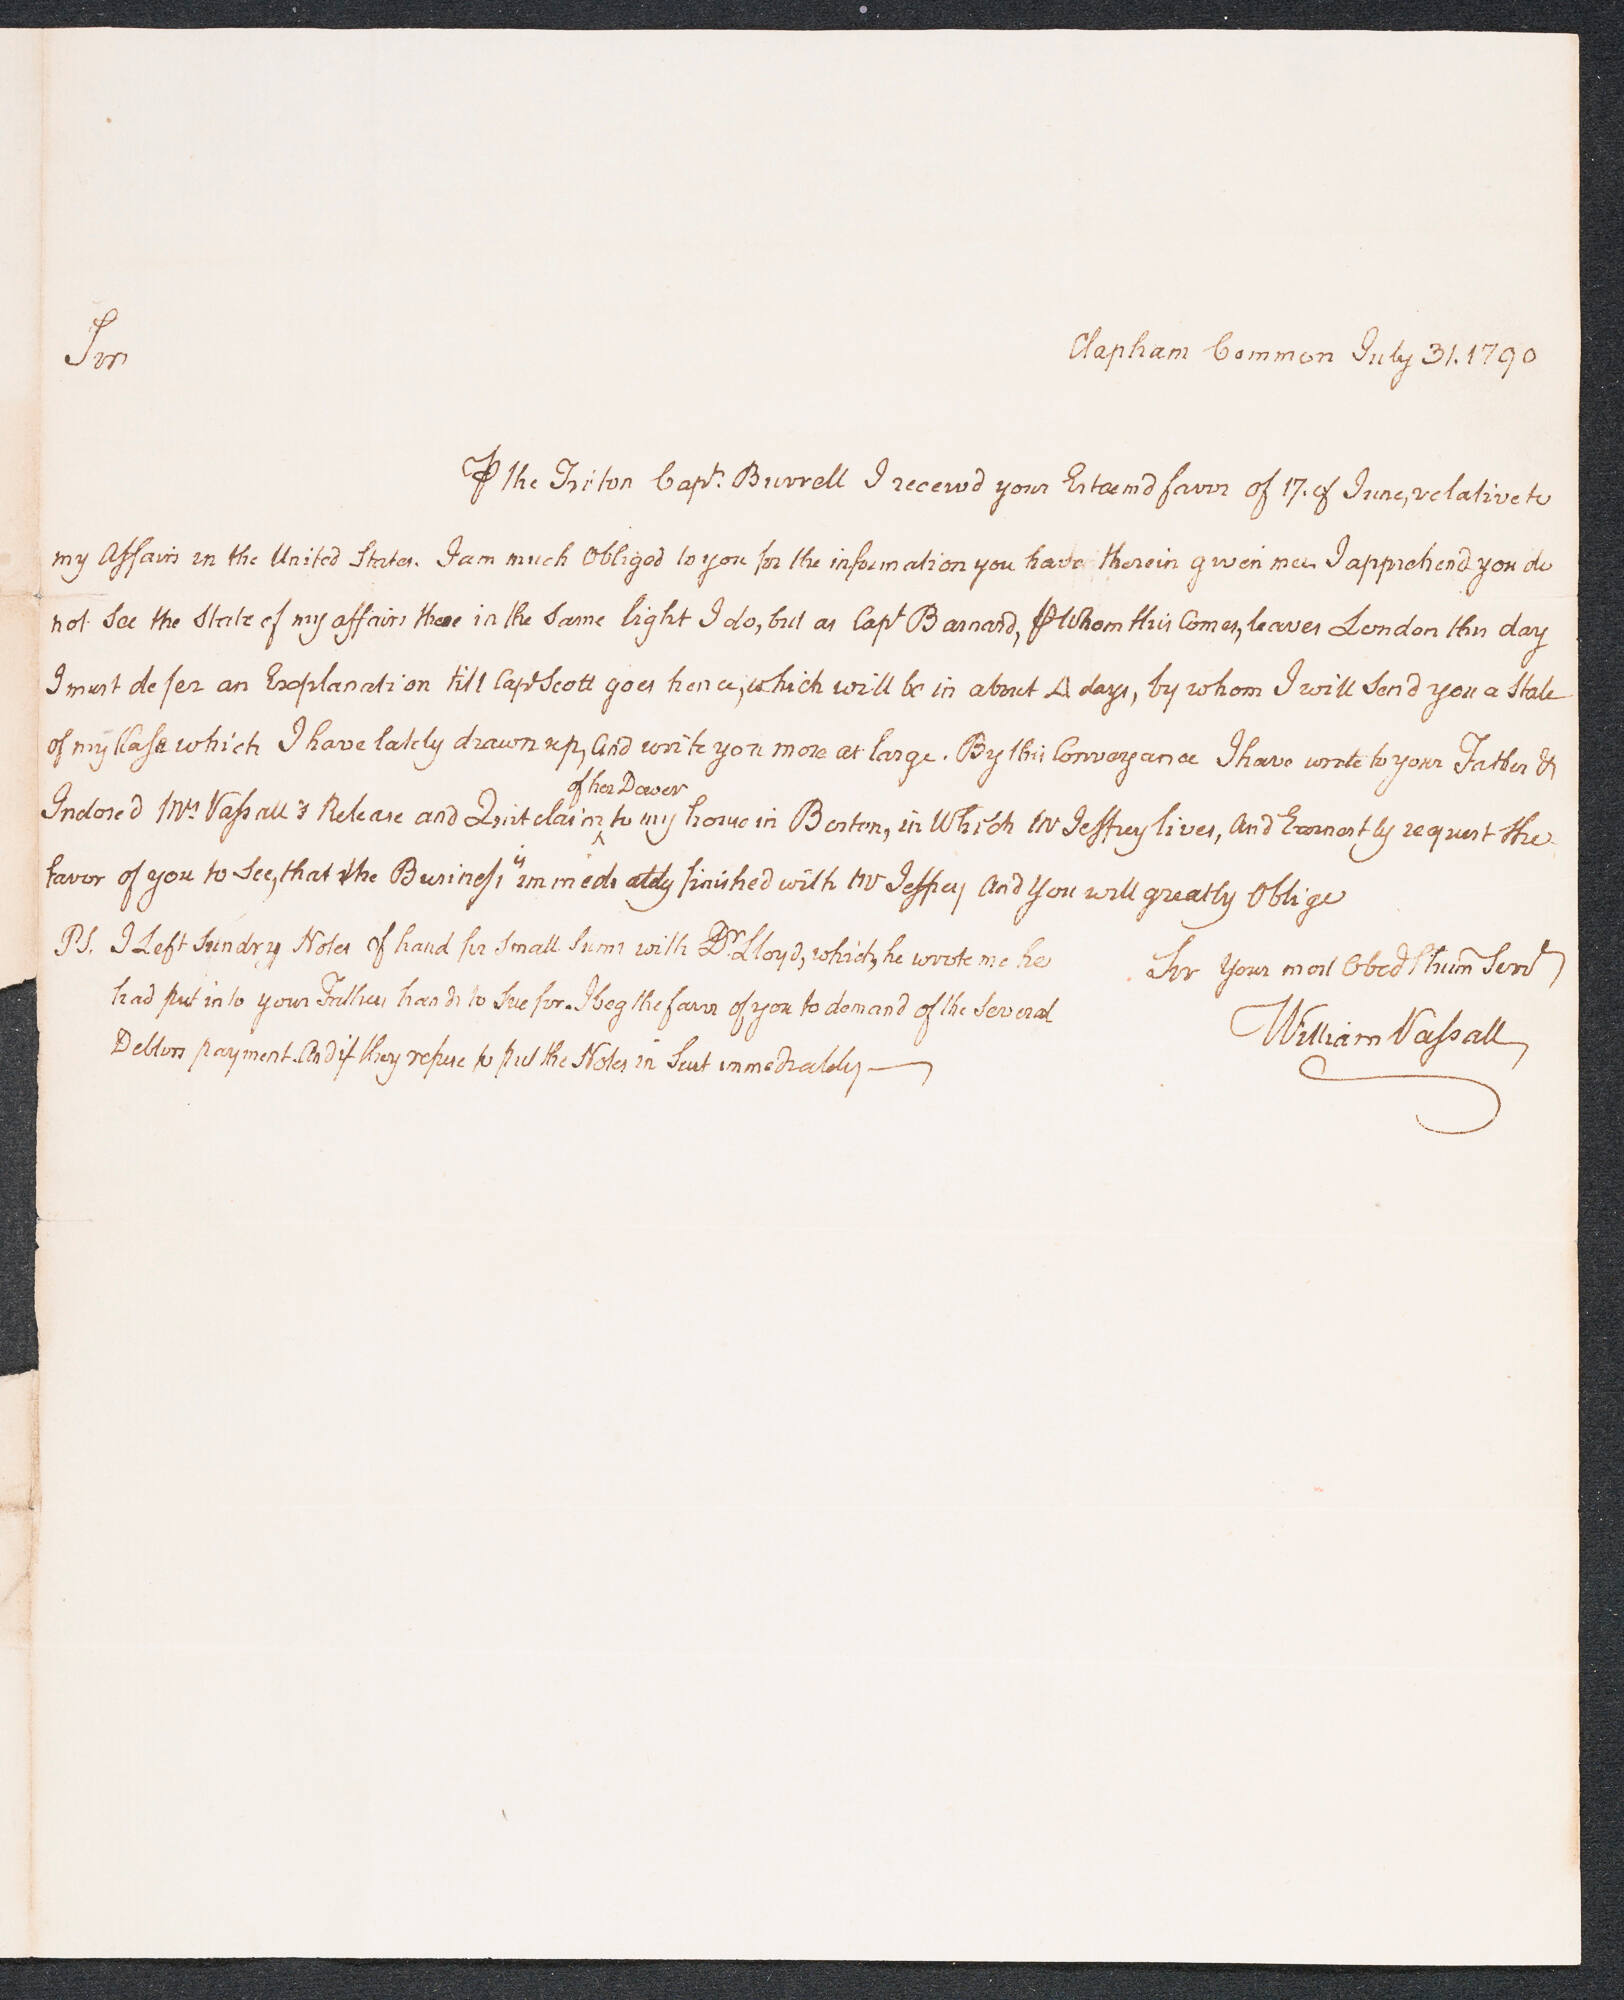 Sir
Clapham Common July 31. 1790
⅌ the Triton Capt. Burrell I receivd your Esteemd favor of 17. of June, relative to
my Affairs in the United States. I am much Obliged to you for the information you have therein given me. I apprehend you do
not See the State of my affairs there in the Same light I do, but as Capt Barnard, ⅌ Whom this Comes, leaves London this day
I must defer an Explanation till Capt Scott goes hence, which will be in about 4 days, by whom I will Send you a State
of my Case which I have lately drawn up, And write you more at large. By this Conveyance I have wrote to your Father &
of her Dower
Inclosed Mrs Vassall's Release and Quit claim ^ to my house in Boston, in Which Mr Jeffrey lives, And Earnestly request the
favor of you to See, that the Business is immediately finished with Mr Jeffrey And You will greatly Oblige
PS. I Left Sundry Notes of hand for Small Sums with Dr. Lloyd, which, he wrote me he
had put into your Fathers hands to Sue for. I beg the favor of you to demand of the Several
Debtors payment. And if they refuse to put the Notes in Suit immediately
Sir Your most Obedt hum Servt
William Vassall